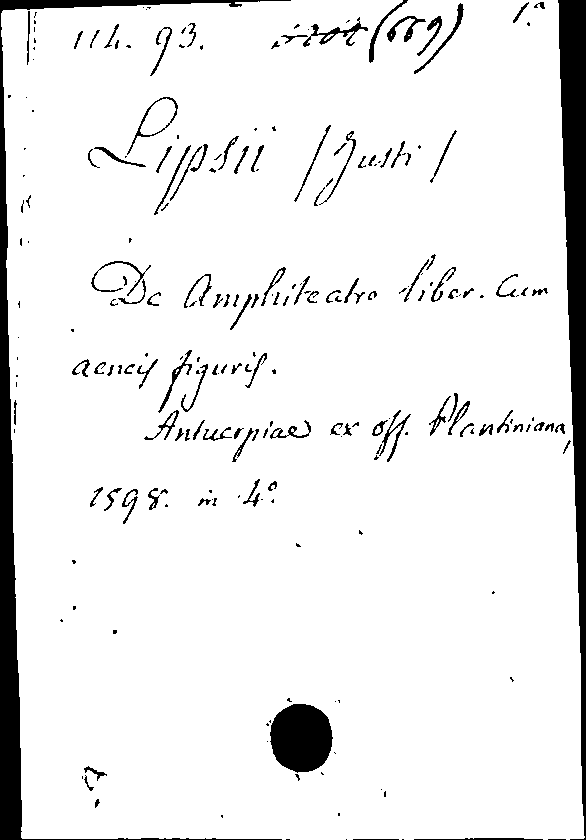 114. 93. (669) 1.a
Lipsii /Justi/
De Amphiteatro liber. Cum
aeneis figuris.
Antuerpiae ex off. Plantiniana,
1598. in 4o.